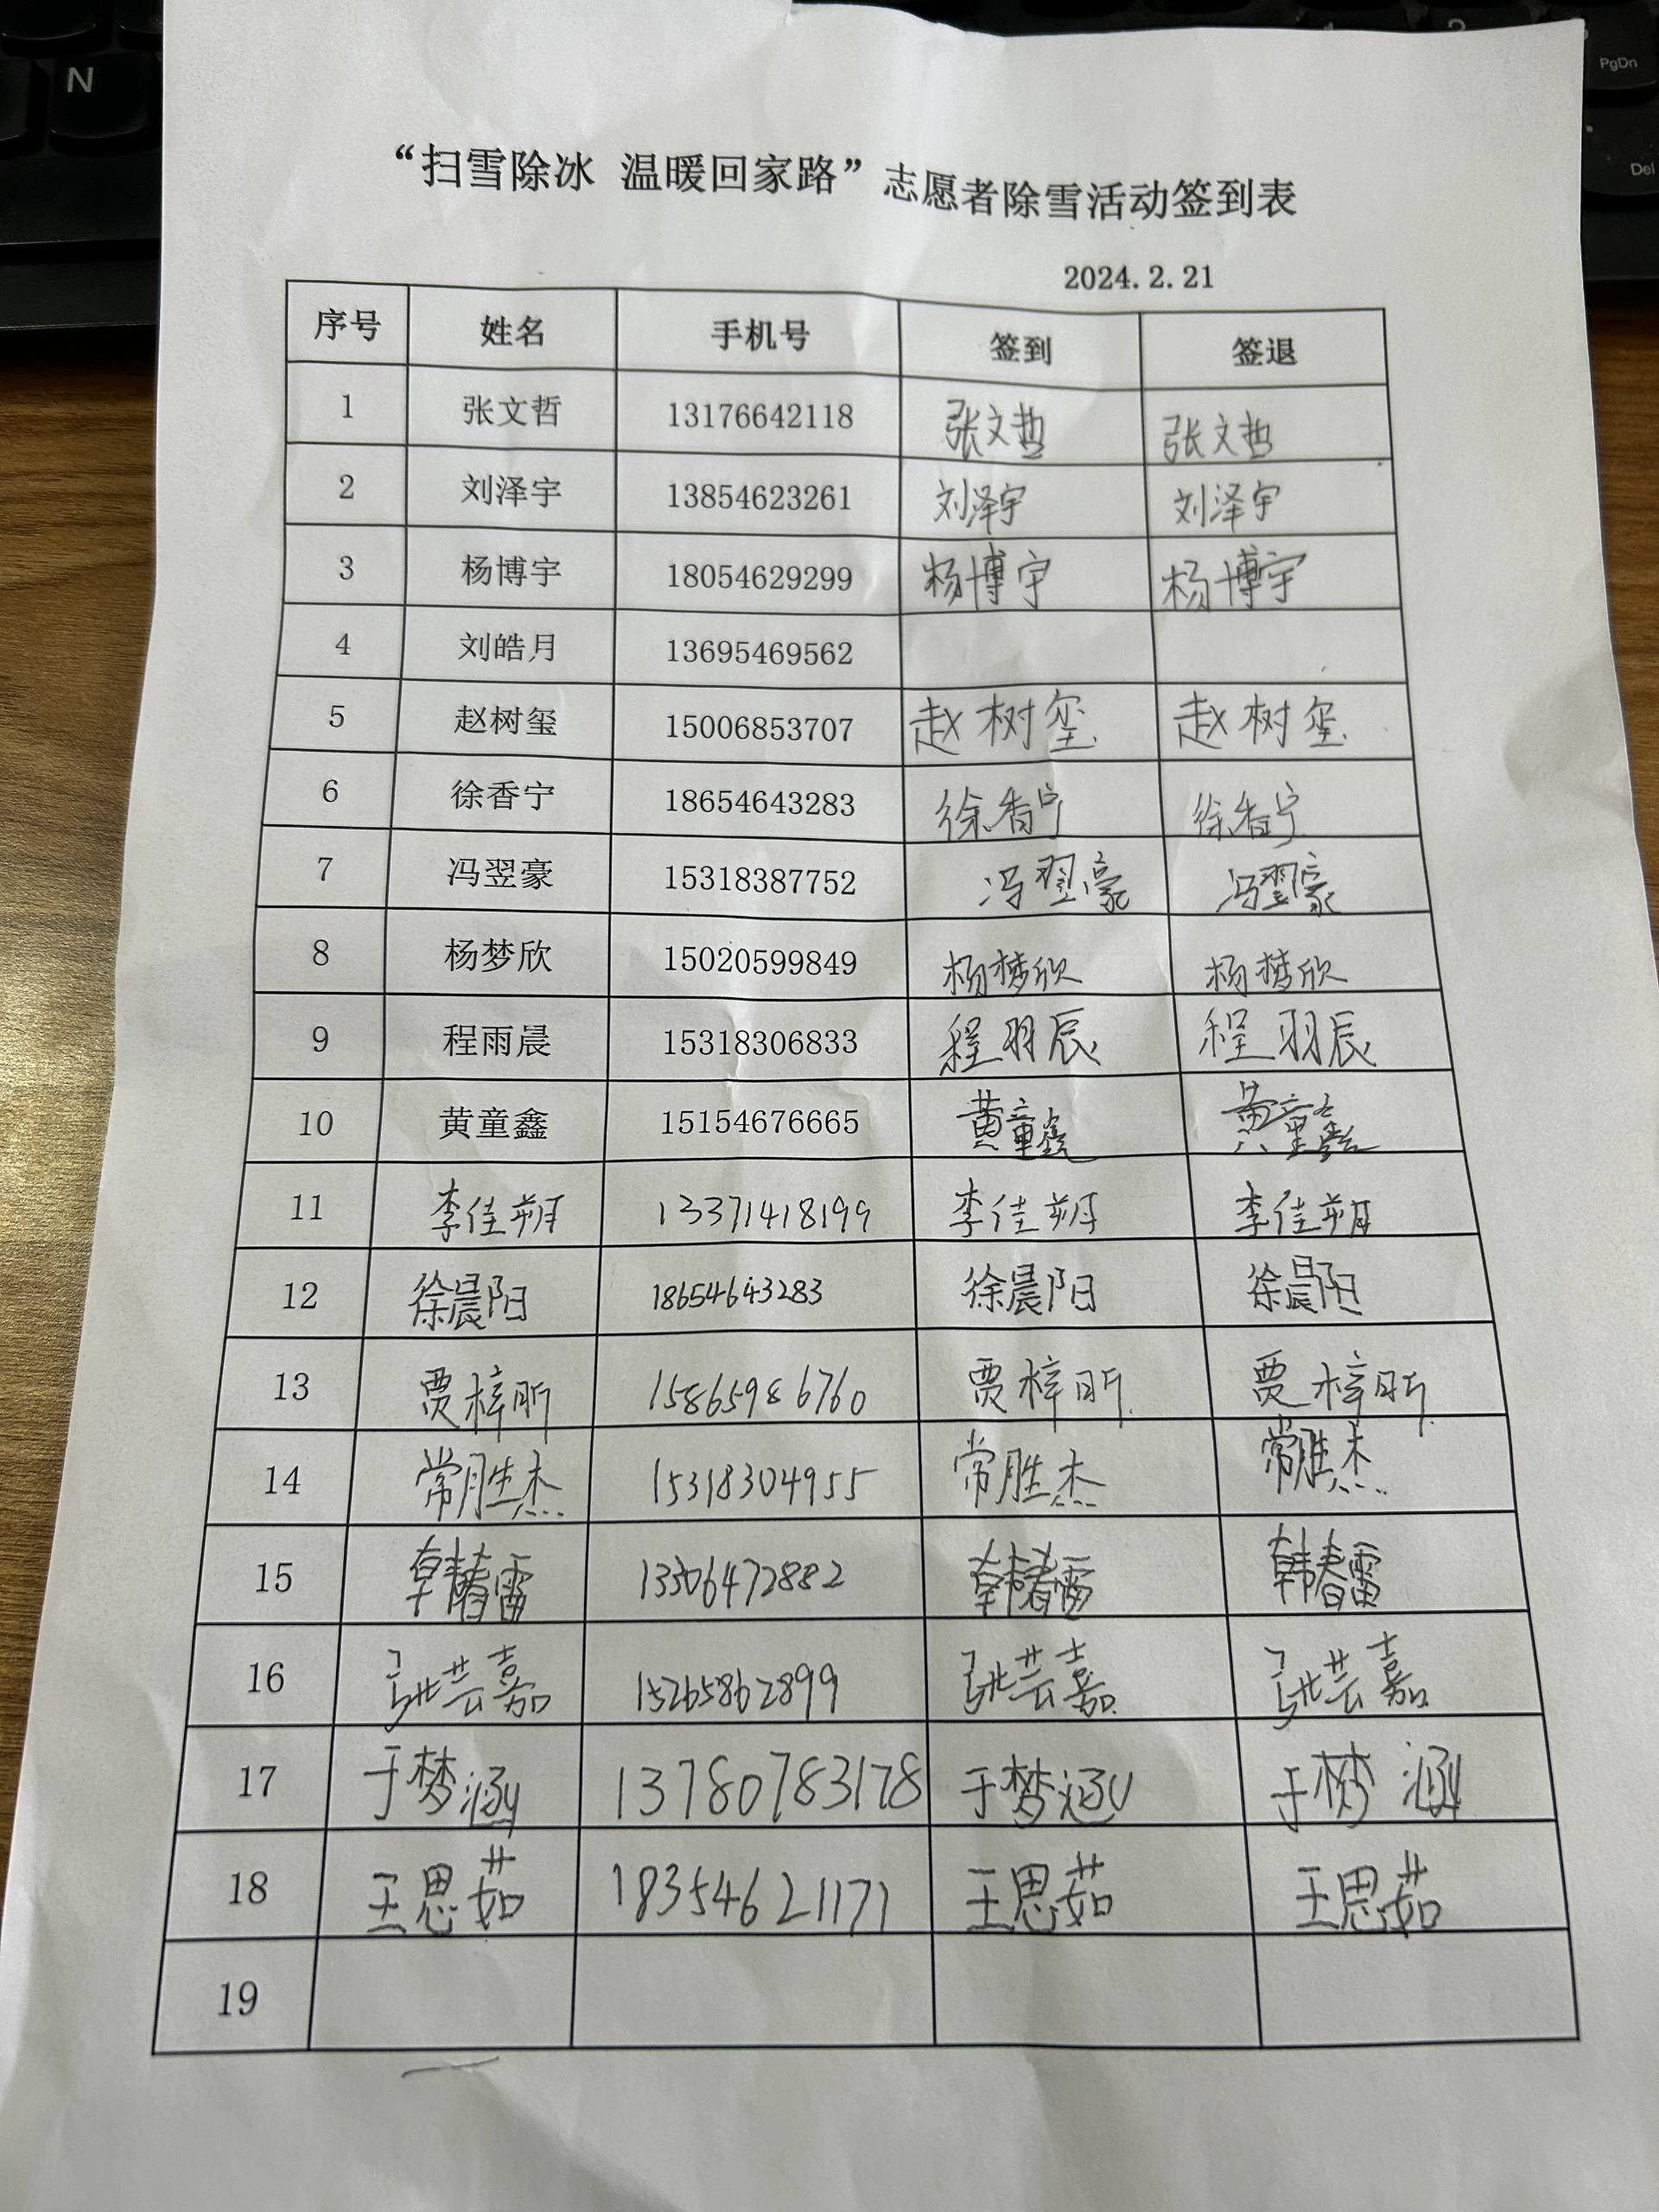 “扫雪除冰 温暖回家路”志愿者除雪活动签到表
2024.2.21
序号 姓名 手机号 签到 签退
1 张文哲 13176642118 张文哲 张文哲
2 刘泽宇 13854623261 刘泽宇 刘泽宇
3 杨博宇 18054629299 杨博宇 杨博宇
4 刘皓月 13695469562
5 赵树玺 15006853707 赵树玺 赵树玺
6 徐香宁 18654643283 徐香宁 徐香宁
7 冯翌豪 15318387752 冯翌豪 冯翌豪
8 杨梦欣 15020599849 杨梦欣 杨梦欣
9 程雨晨 15318306833 程羽辰 程羽辰
10 黄童鑫 15154676665 黄童鑫 黄童鑫
11 李佳朔 13371418199 李佳朔 李佳朔
12 徐晨阳 18654643283 徐晨阳 徐晨阳
13 贾梓昕 15865986760 贾梓昕 贾梓昕
14 常胜杰 15318304955 常胜杰 常胜杰
15 韩春雷 13306472882 韩春雷 韩春雷
16 张芸嘉 15265862899 张芸嘉 张芸嘉
17 于梦涵 13780783178 于梦涵 于梦涵
18 王思茹 18354621171 王思茹 王思茹
19
N
PgDn
Del